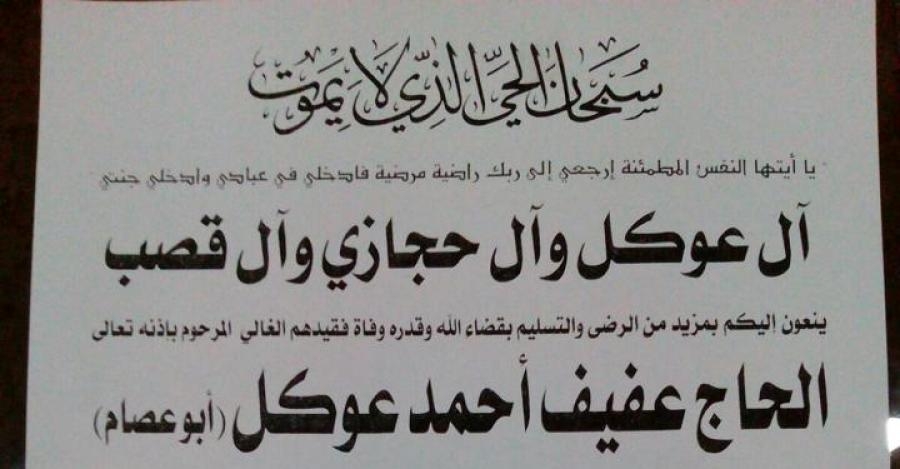 سُبْحَانَ الحَيِّ الَّذِي لَا يَمُوت
يا أيتها النفس المطمئنة إرجعي إلى ربك راضية مرضية فادخلي في عبادي وادخلي جنتي
آل عوكل وآل حجازي وآل قصب
ينعون إليكم بمزيد من الرضى والتسليم بقضاء الله وقدره وفاة فقيدهم الغالي المرحوم بإذنه تعالى
الحاج عفيف أحمد عوكل (أبو عصام)